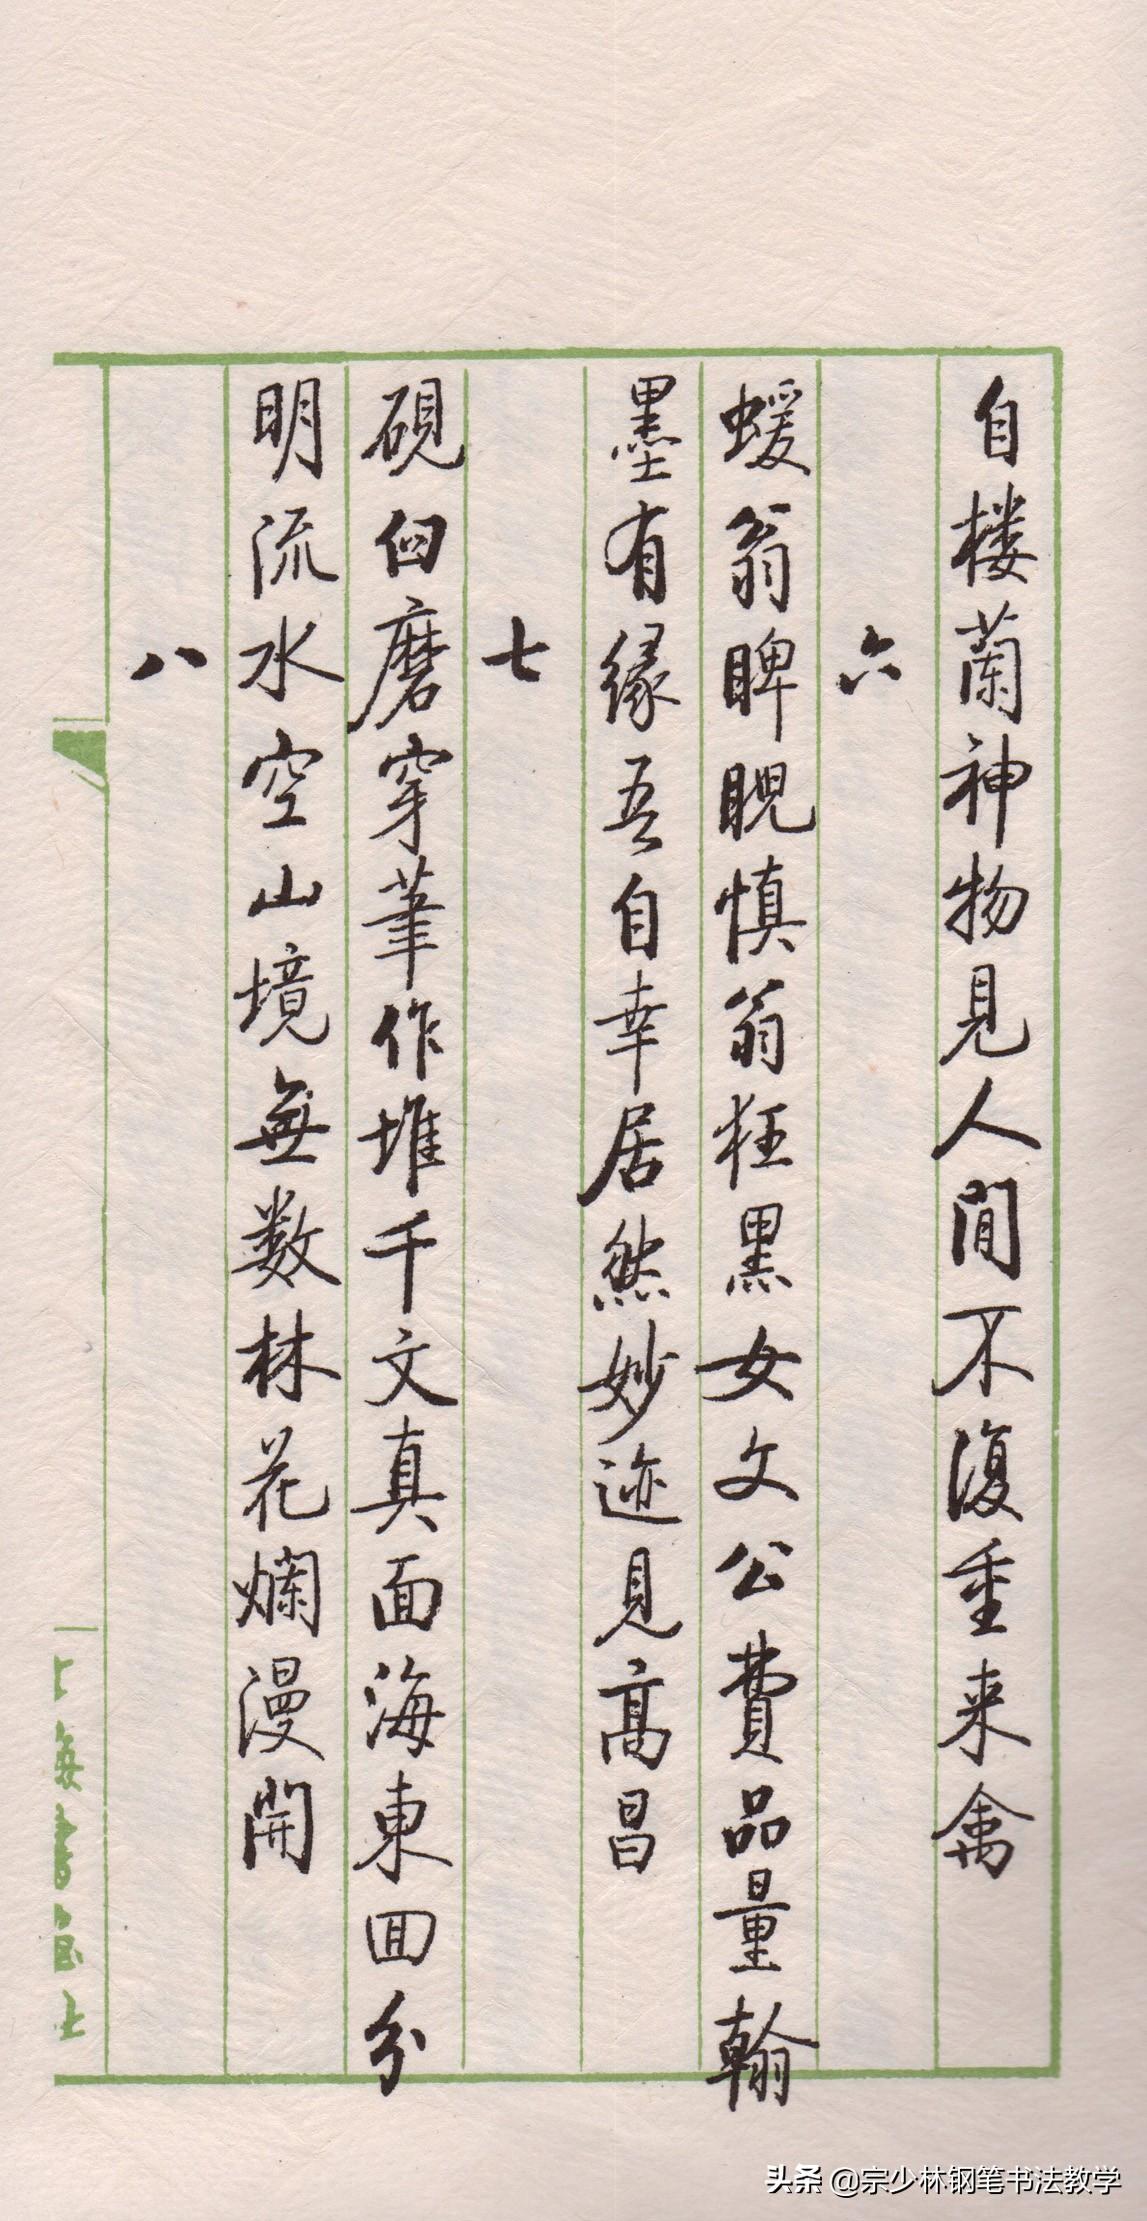 自楼蘭神物見人間不復重来禽
六
蝯翁睥睨慎翁狂黑女文公費品量翰
墨有缘吾自幸居然妙迹見高昌
七
硯臼磨穿筆作堆千文真面海東回分
明流水空山境無数林花爛漫開
八
头条 @宗少林钢笔书法教学